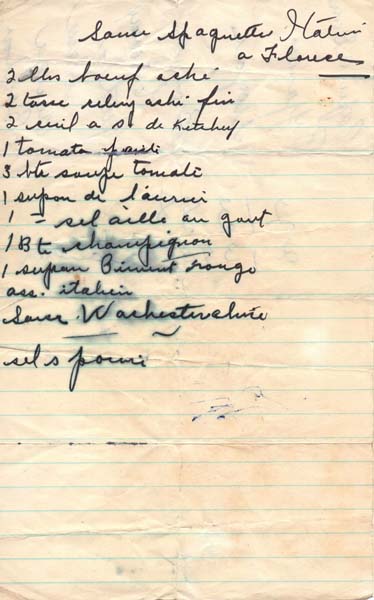 Sauce Spaguette
a Florece
2 lbs boeuf aché
2 tasse seleuy aché fin
2 cuil a s de Ketchup
1 tomato
3 bte soupe tomati
1 supon de laurier
1 – sel aille au gout
1 Bte champignon
1 supon Piment rouge
ass. italien
Sauce Wachestershire
sel s poivri